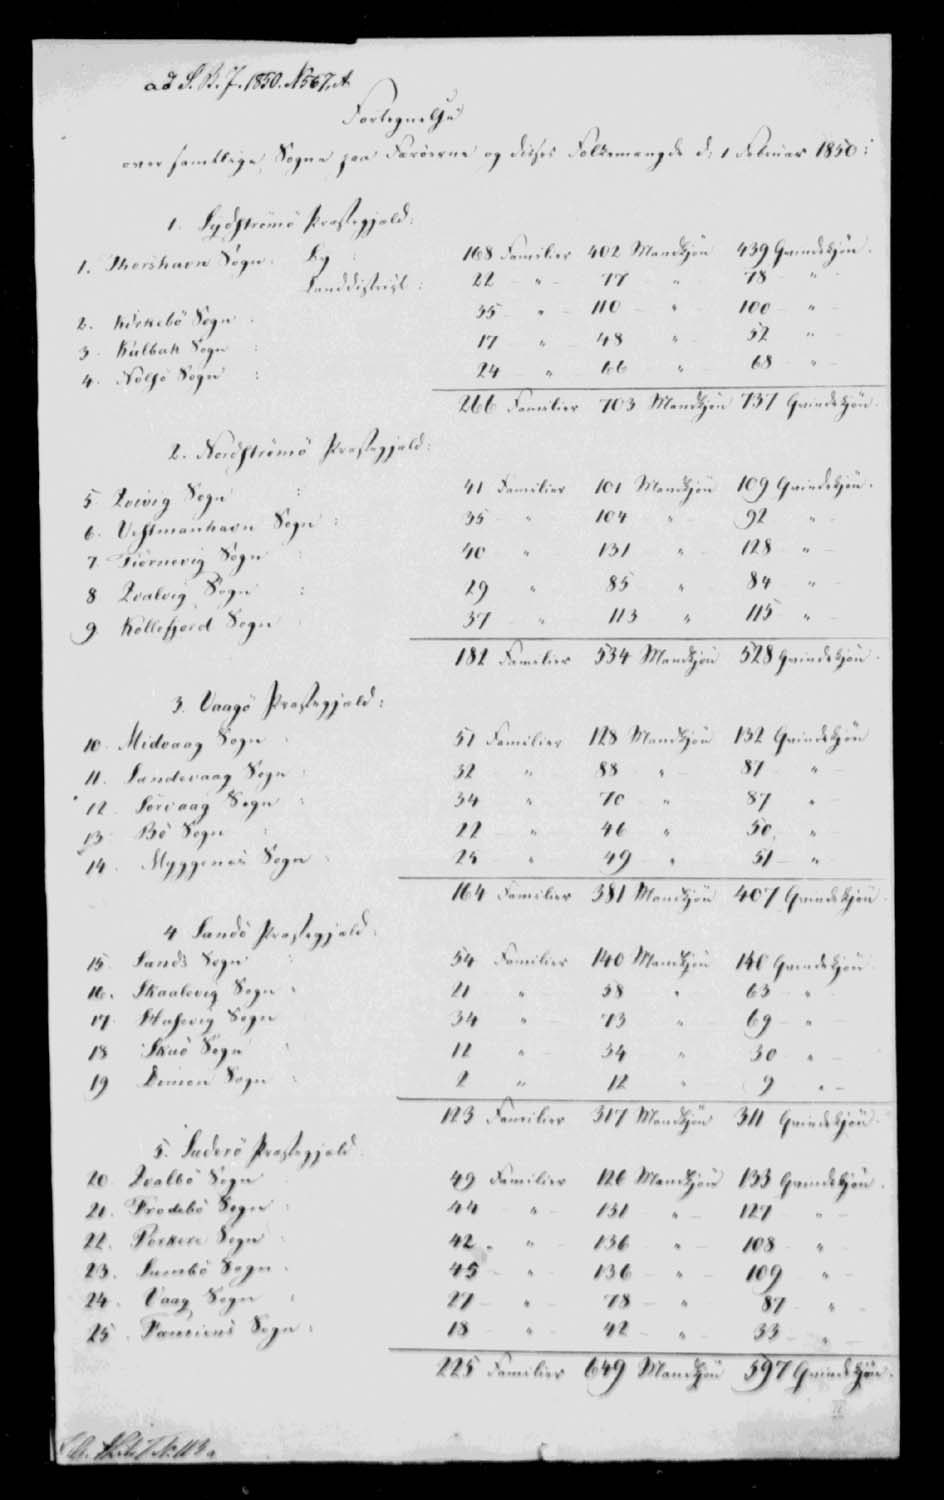 ad S.R.J. 1850. No 567, A.
Fortegnelse
over samtlige Sogne paa Færöerne og disses Folkemængde d: 1 Februar 1850:
1. Sydströmö Præstegjæld:
1. Thorshavn Sogn. By : 168 Familier 402 Mandkjön 439 Qvindekjön.
Landdistrict : 22 — " — 77 — " — 78 — " —
2. Kirkebö Sogn : 35 — " — 110 — " — 100 — " —
3. Kalbak Sogn : 17 — " — 48 — " — 52 — " —
4. Nolsö Sogn : 24 — " — 66 — " — 68 — " —
266 Familier 703 Mandkjön 737 Qvindekjön.
2. Nordströmö Præstegjæld:
5 Qvivig Sogn : 41 Familier 101 Mandkjön 109 Qvindekjön.
6. Vestmanhavn Sogn : 35 — " — 104 — " — 92 — " —
7 Tiörnevig Sogn 40 — " — 131 — " — 128 — " —
8 Qvalvig Sogn : 29 — " — 85 — " — 84 — " —
9. Kollefjord Sogn 37 — " — 113 — " — 115 — " —
182 Familier 534 Mandkjön 528 Qvindekjön.
3. Vaagö Præstegjæld:
10. Midvaag Sogn 51 Familier 128 Mandkjön 132 Qvindekjön
11. Sandevaag Sogn : 32 — " — 88 — " — 87 — " —
12. Sörvaag Sogn : 34 — " — 70 — " — 87 — " —
13. Bö Sogn : 22 — " — 46 — " — 50 — " —
14. Myggenæs Sogn 25 — " — 49 — " — 51 — " —
164 Familier 381 Mandkjön 407 Qvindekjön.
4 Sandö Præstegjæld:
15. Sands Sogn : 54 Familier 140 Mandkjön 140 Qvindekjön
16. Skaalevig Sogn : 21 — " — 58 — " — 63 — " —
17. Husevig Sogn 34 — " — 73 — " — 69 — " —
18 Skuö Sogn 12 — " — 34 — " — 30 — " —
19 Dimon Sogn : 2 — " — 12 — " — 9 — " —
123 Familier 317 Mandkjön 311 Qvindekjön.
5. Suderö Præstegjæld
20. Qvalbö Sogn 49 Familier 126 Mandkjön 133 Qvindekjön.
21. Frodebö Sogn : 44 — " — 131 — " — 127 — " —
22. Porkere Sogn 42 — " — 136 — " — 108 — " —
23. Sumbö Sogn 45 — " — 136 — " — 109 — " —
24. Vaag Sogn : 27 — " — 78 — " — 87 — " —
25. Famiens Sogn : 18 — " — 42 — " — 33 — " —
225 Familier 649 Mandkjön 597 Qvindekjön.